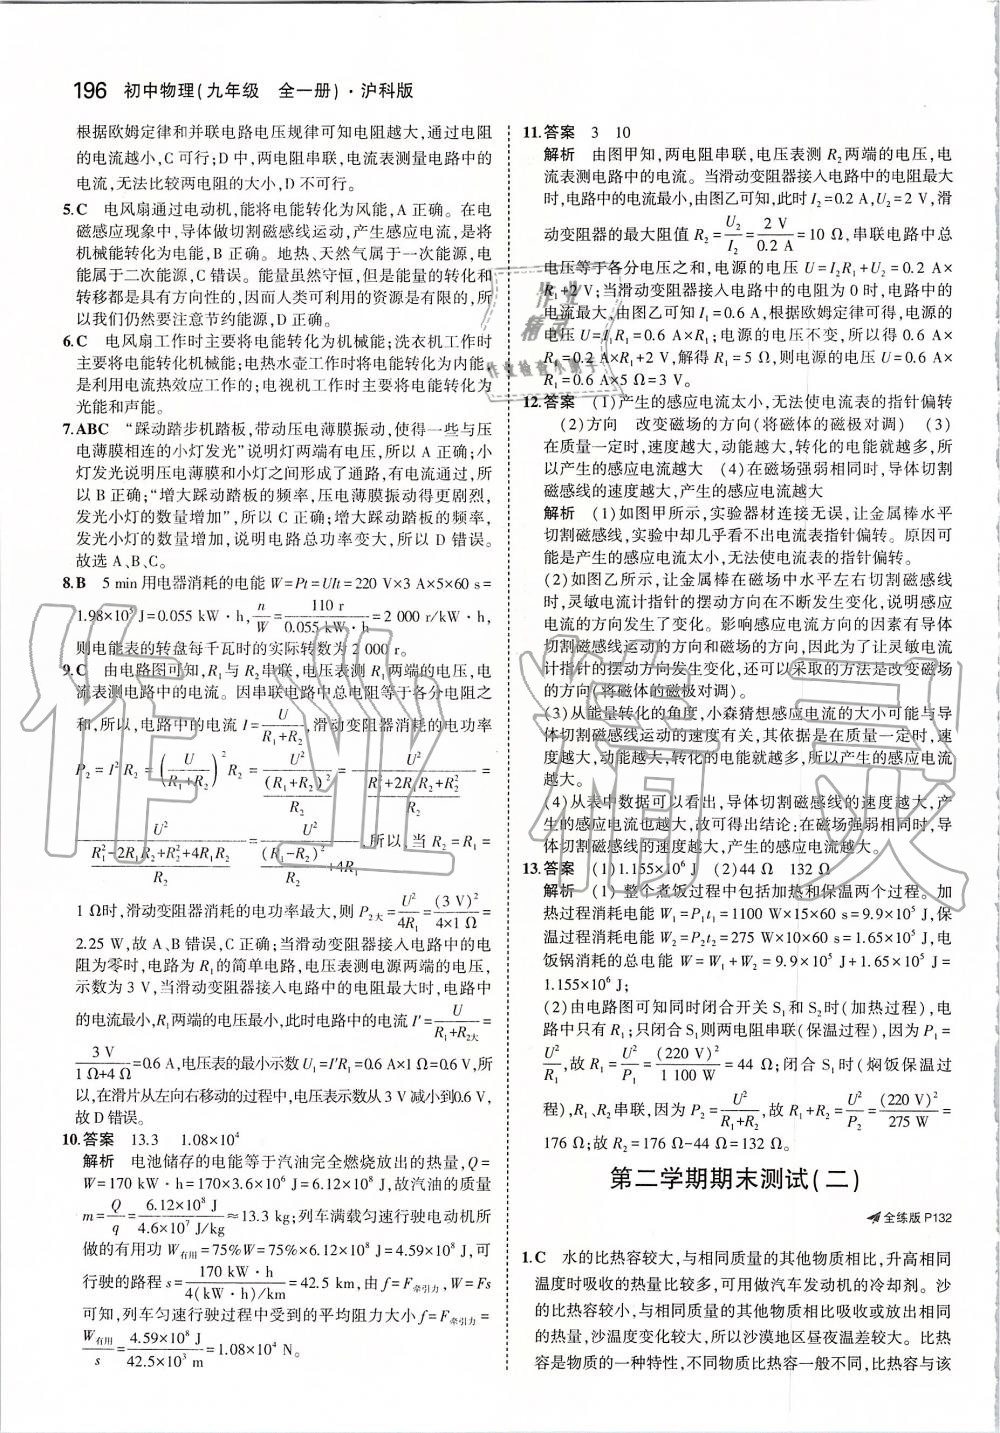 196 初中物理(九年级 全一册)·沪科版
根据欧姆定律和并联电路电压规律可知电阻越大,通过电阻
的电流越小,C可行;D中,两电阻串联,电流表测量电路中的
电流,无法比较两电阻的大小,D不可行。
5.C 电风扇通过电动机,能将电能转化为风能,A正确。在电
磁感应现象中,导体做切割磁感线运动,产生感应电流,是将
机械能转化为电能,B正确。地热、天然气属于一次能源,电
能属于二次能源,C错误。能量虽然守恒,但是能量的转化和
转移都是具有方向性的,因而人类可利用的资源是有限的,所
以我们仍然要注意节约能源,D正确。
6.C 电风扇工作时主要将电能转化为机械能;洗衣机工作时
主要将电能转化机械能;电热水壶工作时将电能转化为内能,
是利用电流热效应工作的;电视机工作时主要将电能转化为
光能和声能。
7.ABC “踩动踏步机踏板,带动压电薄膜振动,使得一些与压
电薄膜相连的小灯发光”说明灯两端有电压,所以A正确;小
灯发光说明压电薄膜和小灯之间形成了通路,有电流通过,所
以B正确;“增大踩动踏板的频率,压电薄膜振动得更剧烈,
发光小灯的数量增加”,所以C正确;增大踩动踏板的频率,
发光小灯的数量增加,说明电路总功率变大,所以D错误。
故选A、B、C。
8.B 5 min用电器消耗的电能 W=Pt=UIt=220 V×3 A×5×60 s=
1.98×10⁵ J=0.055 kW·h, n/W = 110 r/0.055 kW·h = 2 000 r/kW·h,
则电能表的转盘每千瓦时的实际转数为2 000 r。
9.C 由电路图可知,R₁与R₂串联,电压表测R₁两端的电压,电
流表测电路中的电流。因串联电路中总电阻等于各分电阻之
和,所以,电路中的电流 I=U/(R₁+R₂),滑动变阻器消耗的电功率
P₂=I²R₂=(U/(R₁+R₂))²R₂=U²/((R₁+R₂)²/R₂)=U²/((R₁²+2R₁R₂+R₂²)/R₂)=
U²/((R₁²-2R₁R₂+R₂²+4R₁R₂)/R₂)=U²/((R₁-R₂)²/R₂+4R₁),所以当R₂=R₁=
1 Ω时,滑动变阻器消耗的电功率最大,则P₂大=U²/4R₁=(3 V)²/(4×1 Ω)=
2.25 W,故A、B错误,C正确;当滑动变阻器接入电路中的电
阻为零时,电路为R₁的简单电路,电压表测电源两端的电压,
示数为3 V,当滑动变阻器接入电路中的电阻最大时,电路中
的电流最小,R₁两端的电压最小,此时电路中的电流I′=U/(R₁+R₂大)=
3 V/(1 Ω+4 Ω)=0.6 A,电压表的最小示数U₁=I′R₁=0.6 A×1 Ω=0.6 V,所
以,在滑片从左向右移动的过程中,电压表示数从3 V减小到0.6 V,
故D错误。
10.答案 13.3 1.08×10⁴
解析 电池储存的电能等于汽油完全燃烧放出的热量,Q=
W=170 kW·h=170×3.6×10⁶ J=6.12×10⁸ J,故汽油的质量
m=Q/q=6.12×10⁸ J/4.6×10⁷ J/kg≈13.3 kg;列车满载匀速行驶电动机所
做的有用功W有用=75%W=75%×6.12×10⁸ J=4.59×10⁸ J,可
行驶的路程s=170 kW·h/4(kW·h)/km=42.5 km,由f=F牵引力,W=Fs
可知,列车匀速行驶过程中受到的平均阻力大小f=F牵引力=
W有用/s=4.59×10⁸ J/42.5×10³ m=1.08×10⁴ N。
11.答案 3 10
解析 由图甲知,两电阻串联,电压表测R₂两端的电压,电
流表测电路中的电流。当滑动变阻器接入电路中的电阻最大
时,电路中的电流最小,由图乙可知,此时I₂=0.2 A,U₂=2 V,滑
动变阻器的最大阻值R₂=U₂/I₂=2 V/0.2 A=10 Ω,串联电路中总
电压等于各分电压之和,电源的电压U=I₂R₁+U₂=0.2 A×
R₁+2 V;当滑动变阻器接入电路中的电阻为0时,电路中的
电流最大,由图乙可知I₁=0.6 A,根据欧姆定律可得,电源的
电压U=I₁R₁=0.6 A×R₁;电源的电压不变,所以得0.6 A×
R₁=0.2 A×R₁+2 V,解得R₁=5 Ω,则电源的电压U=0.6 A×
R₁=0.6 A×5 Ω=3 V。
12.答案 (1)产生的感应电流太小,无法使电流表的指针偏转
(2)方向 改变磁场的方向(将磁体的磁极对调) (3)
在质量一定时,速度越大,动能越大,转化的电能就越多,所
以产生的感应电流越大 (4)在磁场强弱相同时,导体切割
磁感线的速度越大,产生的感应电流越大
解析 (1)如图甲所示,实验器材连接无误,让金属棒水平
切割磁感线,实验中却几乎看不出电流表指针偏转。原因可
能是产生的感应电流太小,无法使电流表的指针偏转。
(2)如图乙所示,让金属棒在磁场中水平左右切割磁感线
时,灵敏电流计指针的摆动方向在不断发生变化,说明感应
电流的方向发生了变化。影响感应电流方向的因素有导体
切割磁感线运动的方向和磁场的方向,因此为了让灵敏电流
计指针的摆动方向发生变化,还可以采取的方法是改变磁场
的方向(将磁体的磁极对调)。
(3)从能量转化的角度,小森猜想感应电流的大小可能与导
体切割磁感线运动的速度有关,其依据是在质量一定时,速
度越大,动能越大,转化的电能就越多,所以产生的感应电流
越大。
(4)从表中数据可以看出,导体切割磁感线的速度越大,产
生的感应电流也越大,故可得出结论:在磁场强弱相同时,导
体切割磁感线的速度越大,产生的感应电流越大。
13.答案 (1)1.155×10⁶ J (2)44 Ω 132 Ω
解析 (1)整个煮饭过程中包括加热和保温两个过程。加
热过程消耗电能W₁=P₁t₁=1100 W×15×60 s=9.9×10⁵ J,保
温过程消耗电能W₂=P₂t₂=275 W×10×60 s=1.65×10⁵ J,电
饭锅消耗的总电能W=W₁+W₂=9.9×10⁵ J+1.65×10⁵ J=
1.155×10⁶ J;
(2)由电路图可知同时闭合开关S₁和S₂时(加热过程),电
路中只有R₁;只闭合S₁则两电阻串联(保温过程),因为P₁=
U²/R₁,故R₁=U²/P₁=(220 V)²/1 100 W=44 Ω;闭合S₁时(焖饭保温过
程),R₁、R₂串联,因为P₂=U²/(R₁+R₂),故R₁+R₂=U²/P₂=(220 V)²/275 W=
176 Ω;故R₂=176 Ω-44 Ω=132 Ω。
第二学期期末测试(二)
全练版P132
1.C 水的比热容较大,与相同质量的其他物质相比,升高相同
温度时吸收的热量比较多,可用做汽车发动机的冷却剂。沙
的比热容较小,与相同质量的其他物质相比吸收或放出相同
的热量,沙温度变化较大,所以沙漠地区昼夜温差较大。比热
容是物质的一种特性,不同物质比热容一般不同,比热容与该
作业精灵